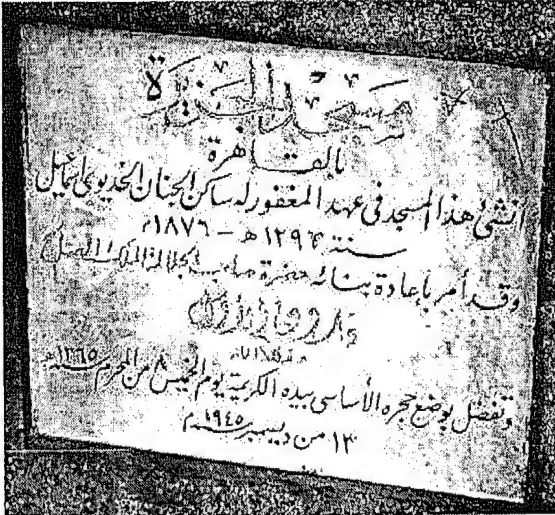 مسجد الجزيرة
بالقاهرة
أنشئ هذا المسجد في عهد المغفور له ساكن الجنان الخديوى اسماعيل
سنة ١٢٩٣ هـ - ١٨٧٦م
وقد أمر بإعادة بنائه حضرة صاحب الجلالة الملك الصالح
فاروق الأول
حفظه الله
وتفضل بوضع حجره الأساسى بيده الكريمة يوم الخميس ٨ من المحرم سنة ١٣٦٥هـ
١٣ من ديسمبر سنة ١٩٤٥م